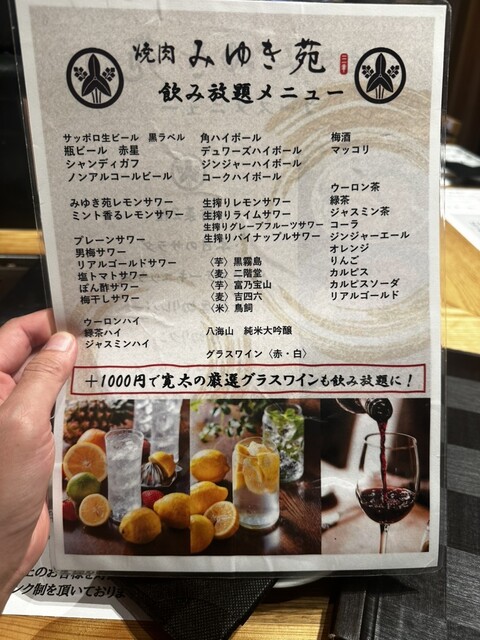 焼肉 みゆき苑
飲み放題メニュー
サッポロ生ビール 黒ラベル
瓶ビール 赤星
シャンディガフ
ノンアルコールビール
みゆき苑レモンサワー
ミント香るレモンサワー
プレーンサワー
男梅サワー
リアルゴールドサワー
塩トマトサワー
ぽん酢サワー
梅干しサワー
ウーロンハイ
緑茶ハイ
ジャスミンハイ
角ハイボール
デュワーズハイボール
ジンジャーハイボール
コークハイボール
生搾りレモンサワー
生搾りライムサワー
生搾りグレープフルーツサワー
生搾りパイナップルサワー
〈芋〉黒霧島
〈麦〉二階堂
〈芋〉富乃宝山
〈麦〉吉四六
〈米〉鳥飼
八海山 純米大吟醸
グラスワイン〈赤・白〉
梅酒
マッコリ
ウーロン茶
緑茶
ジャスミン茶
コーラ
ジンジャーエール
オレンジ
りんご
カルピス
カルピスソーダ
リアルゴールド
+1000円で寛太の厳選グラスワインも飲み放題に!
上のお客様を
ンク制を頂いております